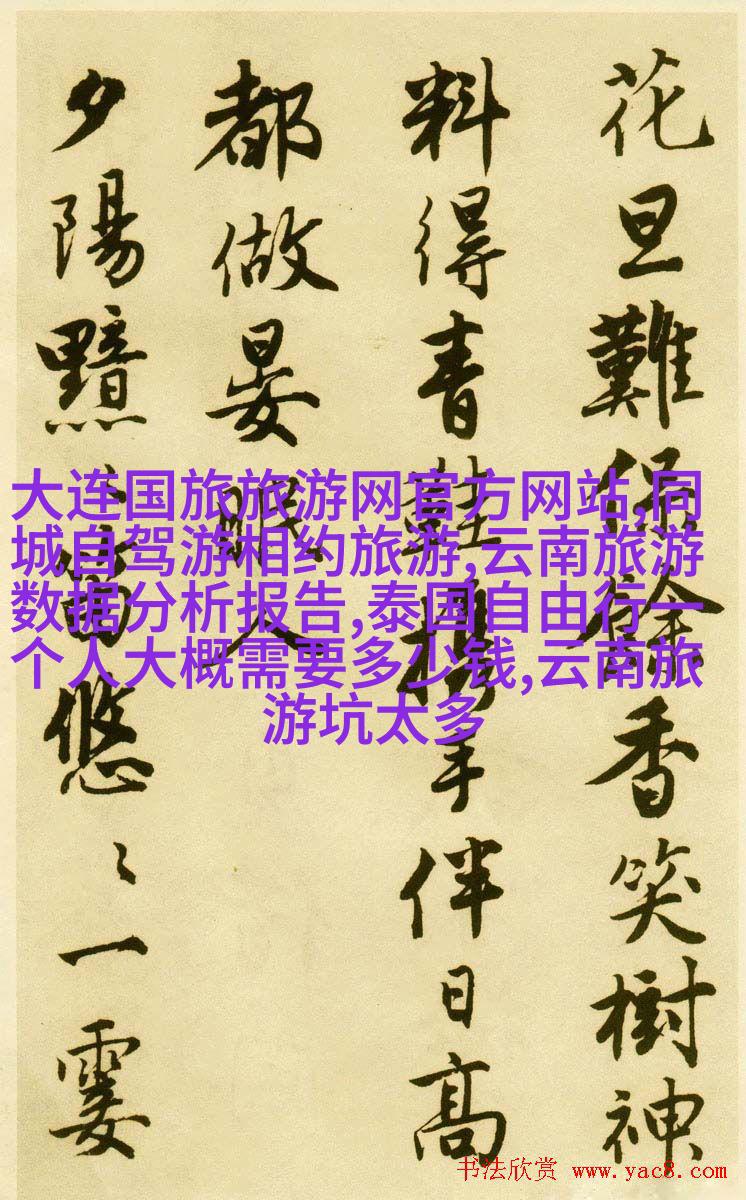 花旦難餘香笑樹神
料得青鞋攜手伴日高
都做晏眠人
夕陽黯〻當悠〻一霎
大连国旅旅游网官方网站,同
城自驾游相约旅游,云南旅游
数据分析报告,泰国自由行一
个人大概需要多少钱,云南旅
游坑太多
书法欣赏 www.yac8.com